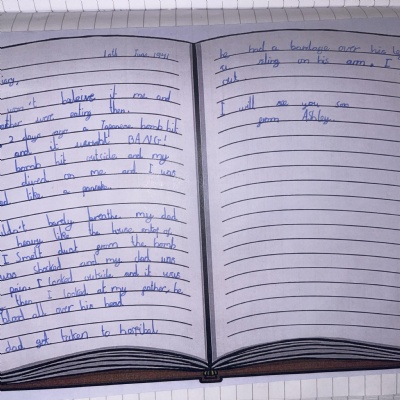 10th June 1941
iary,
won't beleive it me and
ather were eating then
2 days ago a Japanese bomb hit
and it went BANG!
bomb hit outside and my
dived on me and I was
ed like a pancake.
uldn't hardly breathe my dad
heavy like the house on top of
I smelt dust from the bomb
was shocked and my dad was
pain. I looked outside and it was
then I looked at my father, he
blood all over his head
dad got taken to hospital
he had a bandage over his leg
a sling on his arm, I
out.
I will see you soon
from Ashley.